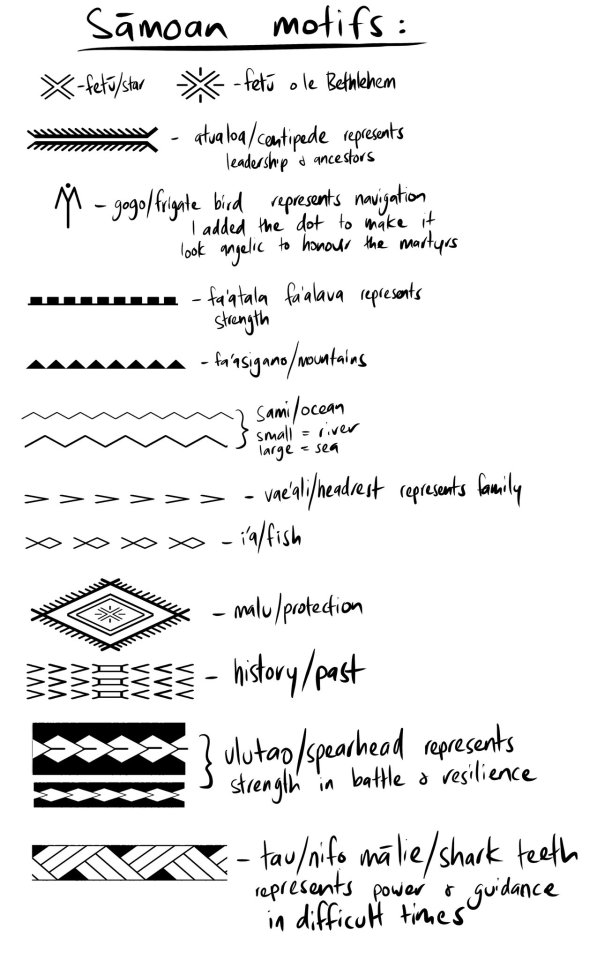 Sāmoan motifs:
-fetū/star
-fetū o le Bethlehem
- atualoa/centipede represents
leadership & ancestors
- gogo/frigate bird represents navigation
I added the dot to make it
look angelic to honour the martyrs
- fa'atala fa'alava represents
strength
- fa'asigano/mountains
Sami/ocean
small = river
large = sea
- vae'ali/headrest represents family
- i'a/fish
- malu/protection
- history/past
ulutao/spearhead represents
strength in battle & resilience
- tau/nifo mālie/shark teeth
represents power & guidance
in difficult times